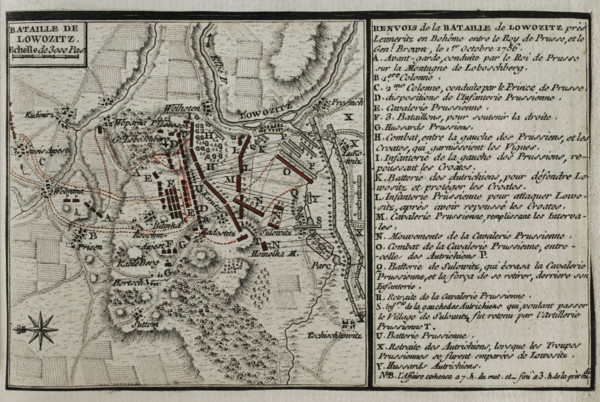 BATAILLE DE
LOWOZITZ.
Echelle de 3000 Pas
LOWOZITZ
Welhoten
Kuhmirz
Wchinna
Prisen
Bilinka
Radositz
Sulowitz
Homolka M.
Parc
Kahle Berg
Suttom
Tschischkowitz
RENVOIS de la BATAILLE de LOWOZITZ près
Leitmeritz en Bohême entre le Roy de Prusse, et le
Genl. Brown, le 1er Octobre 1756.
A. Avant-garde, conduite par le Roi de Prusse
sur la Montagne de Loboschberg.
B. Colonne.
C. 2me Colonne, conduite par le Prince de Prusse.
D. dispositions de l'Infanterie Prussienne.
E. Cavalerie Prussienne.
F. 3. Bataillons, pour soutenir la droite.
G. Hussards Prussiens.
H. Combat, entre la gauche des Prussiens, et les
Croates, qui garnissoient les Vignes.
I. Infanterie de la gauche des Prussiens, re-
poussant les Croates.
K. Batterie des Autrichiens, pour défendre Lo-
wositz et protéger les Croates.
L. Infanterie Prussienne pour attaquer Lowo-
sitz, après avoir repoussé les Croates.
M. Cavalerie Prussienne, remplissant les Interva-
les.
N. Mouvements de la Cavalerie Prussienne.
O. Combat de la Cavalerie Prussienne, entre-
celle des Autrichiens P.
Q. Batterie de Sulowitz, qui écrasa la Cavalerie
Prussienne, et la força de se retirer, derriere son
Infanterie.
R. Retraite de la Cavalerie Prussienne.
S. Inf. de la gauche des Autrichiens qui, voulant passer
le Village de Sulowitz, fut retenu par l'Artillerie
Prussienne T.
U. Batterie Prussienne.
X. Retraite des Autrichiens, lorsque les Troupes
Prussiennes se furent emparées de Lowositz.
Y. Hussards Autrichiens.
NB. L'Affaire comença a 7. h. du mat. et fini a 3. h.